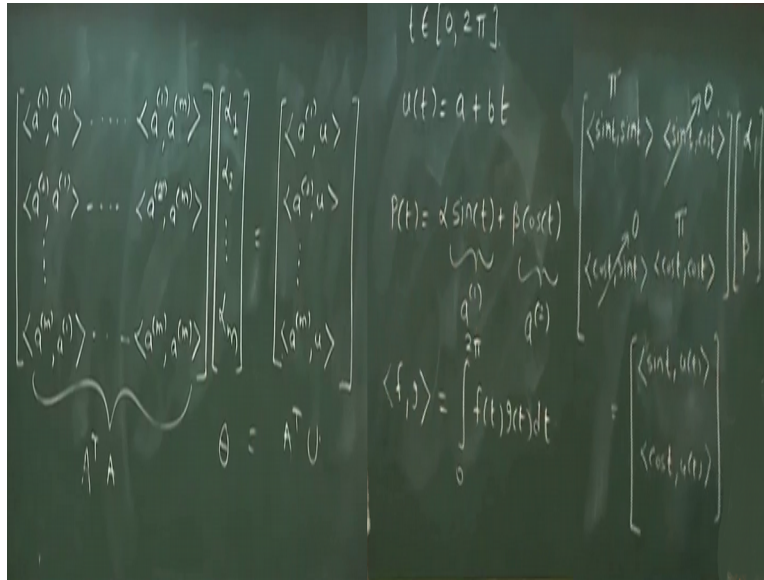 [ ⟨a^(1), a^(1)⟩ ..... ⟨a^(1), a^(m)⟩ ] [ α_1 ] [ ⟨a^(1), u⟩ ]
[ ⟨a^(2), a^(1)⟩ ..... ⟨a^(2), a^(m)⟩ ] [ α_2 ] = [ ⟨a^(2), u⟩ ]
[ ⟨a^(m), a^(1)⟩ ..... ⟨a^(m), a^(m)⟩ ] [ α_m ] [ ⟨a^(m), u⟩ ]
A^T A θ = A^T U
t ∈ [0, 2π]
u(t) = a + bt
p(t) = α sin(t) + β cos(t)
a^(1) a^(2)
⟨f, g⟩ = ∫_0^2π f(t) g(t) dt
π 0
[ ⟨sint, sint⟩ ⟨sint, cost⟩ ] [ α ]
0 π
[ ⟨cost, sint⟩ ⟨cost, cost⟩ ] [ β ]
= [ ⟨sint, u(t)⟩ ]
[ ⟨cost, u(t)⟩ ]